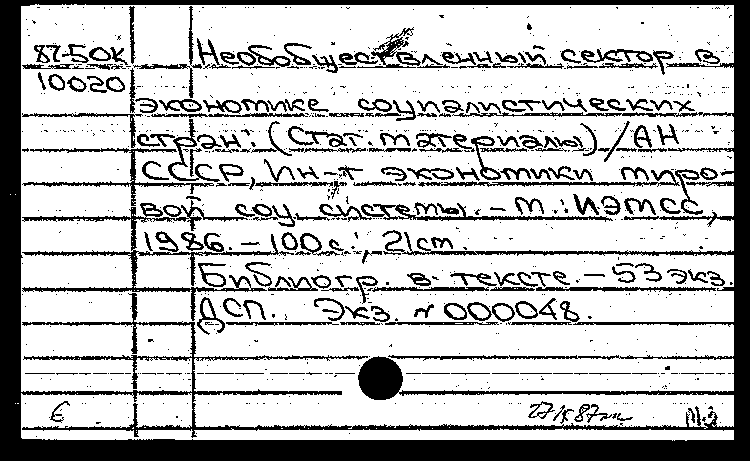 87-50К Необобществленный сектор в
10020
экономике социалистических
стран: (Стат. материалы) / АН
СССР, Ин-т экономики миро-
вой соц. системы. - М.: ИЭМСС,
1986. - 100 с.; 21 см.
Библиогр. в тексте. - 53 экз.
ДСП. Экз. N 000048.